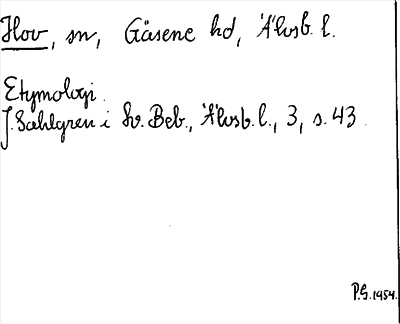 Hov, sn, Gäsene hd, Älvsb. l.
Etymologi.
J. Sahlgren i Sv. Beb., Älvsb. l., 3, s. 43.
P.G. 1954.